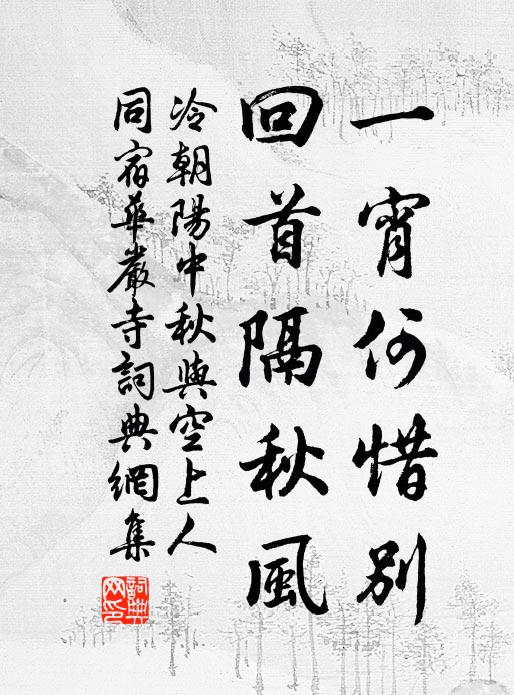 一宵何惜別
回首隔秋風
冷朝陽中秋與空上人
同宿華嚴寺詞典網集